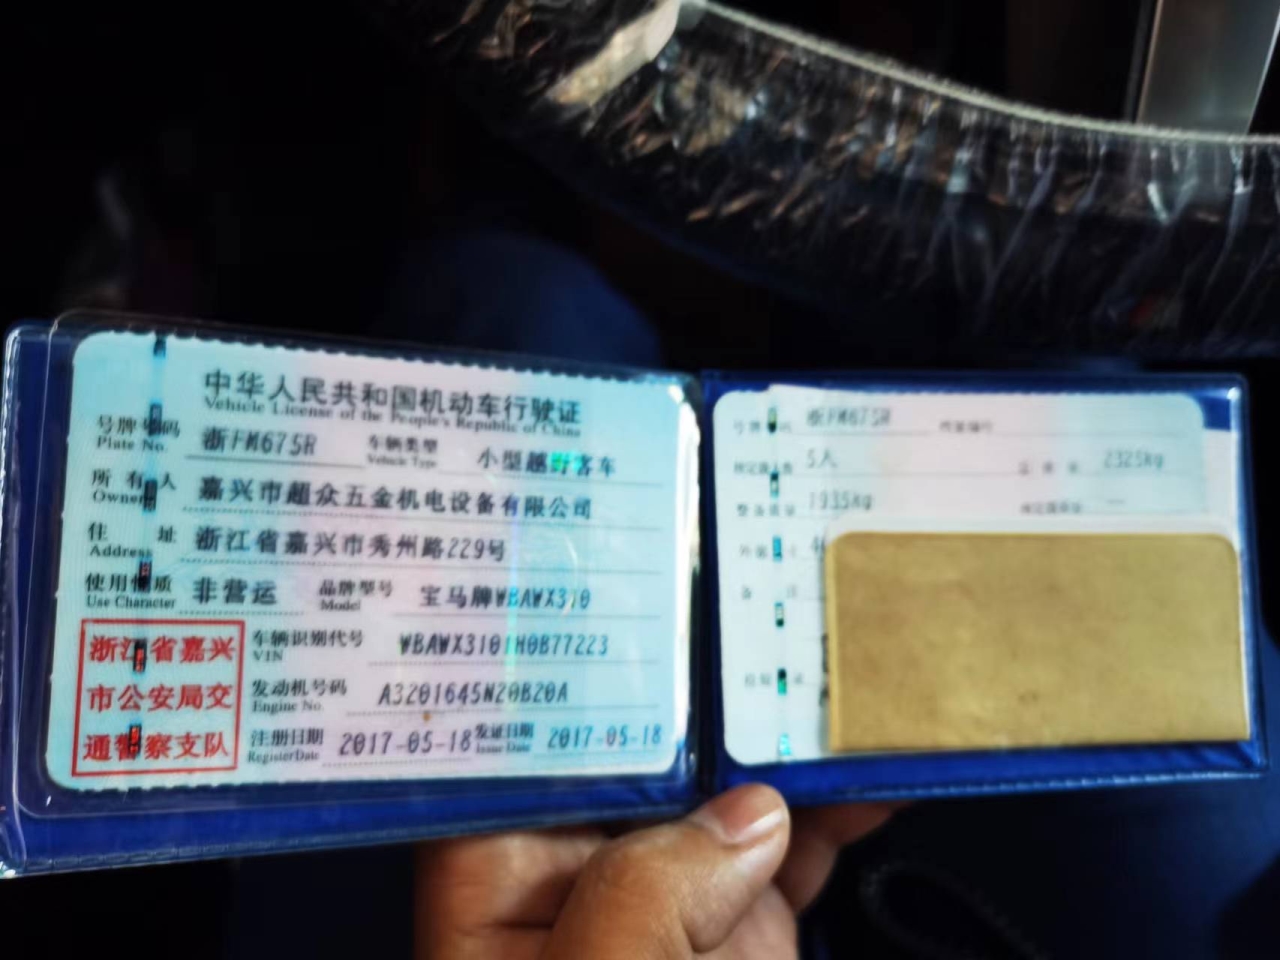 中华人民共和国机动车行驶证
Vehicle License of the People's Republic of China
号牌号码 浙FM675R 车辆类型 小型越野客车
Plate No. Vehicle Type
所有人 嘉兴市超众五金机电设备有限公司
Owner
住址 浙江省嘉兴市秀州路229号
Address
使用性质 非营运 品牌型号 宝马牌WBAWX310
Use Character Model
浙江省嘉兴
市公安局交
通警察支队
车辆识别代号 WBAWX3101H0B77223
VIN
发动机号码 A3201645N20B20A
Engine No.
注册日期 2017-05-18 发证日期 2017-05-18
Register Date Issue Date
号牌号码 浙FM675R 档案编号
核定载人数 5人 总质量 2325kg
整备质量 1935kg 核定载质量 —